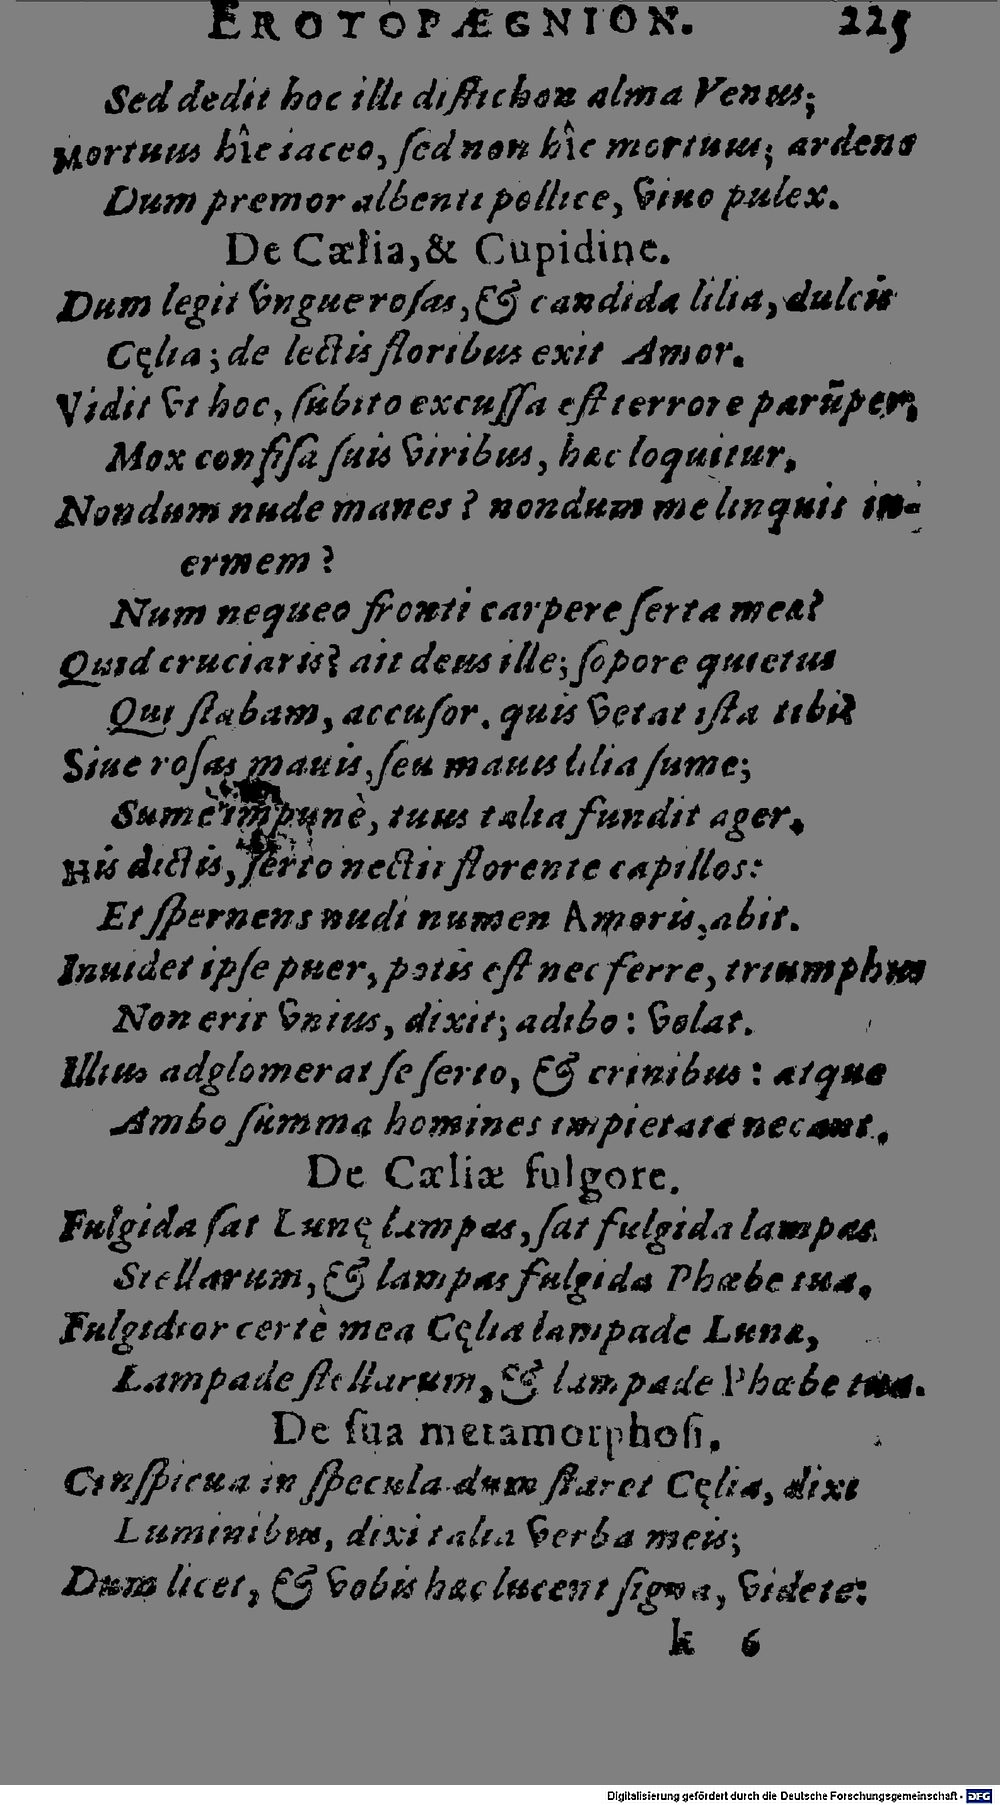 EROTOPÆGNION. 225
Sed dedit hoc illi distichon alma Venus;
Mortuus hîc iaceo, sed non hîc mortuus; ardens
Dum premor albenti pollice, viuo pulex.
De Cælia, & Cupidine.
Dum legit vngue rosas, & candida lilia, dulcis
Cęlia; de lectis floribus exit Amor.
Vidit vt hoc, subito excussa est terrore parũper,
Mox confisa suis viribus, hæc loquitur,
Nondum nude manes? nondum me linquis in-
ermem?
Num nequeo fronti carpere serta meæ?
Quid cruciaris? ait deus ille; sopore quietus
Qui stabam, accusor. quis vetat ista tibi?
Siue rosas mauis, seu mauis lilia sume;
Sume impunè, tuus talia fundit ager.
His dictis, serto nectit florente capillos:
Et spernens nudi numen Amoris, abit.
Inuidet ipse puer, potis est nec ferre, triumphus
Non erit vnius, dixit; adibo: volat.
Illius adglomerat se serto, & crinibus: atque
Ambo summa homines impietate necant.
De Cæliæ fulgore.
Fulgida sat Lunę lampas, sat fulgida lampas
Stellarum, & lampas fulgida Phœbe tua.
Fulgidior certè mea Cęlia lampade Lunæ,
Lampade stellarum, & lampade Phœbe tua.
De sua metamorphosi.
Conspicua in specula dum staret Cęlia, dixi
Luminibus, dixi talia verba meis;
Dum licet, & vobis hæc lucent signa, videte:
k 6
Digitalisierung gefördert durch die Deutsche Forschungsgemeinschaft - DFG